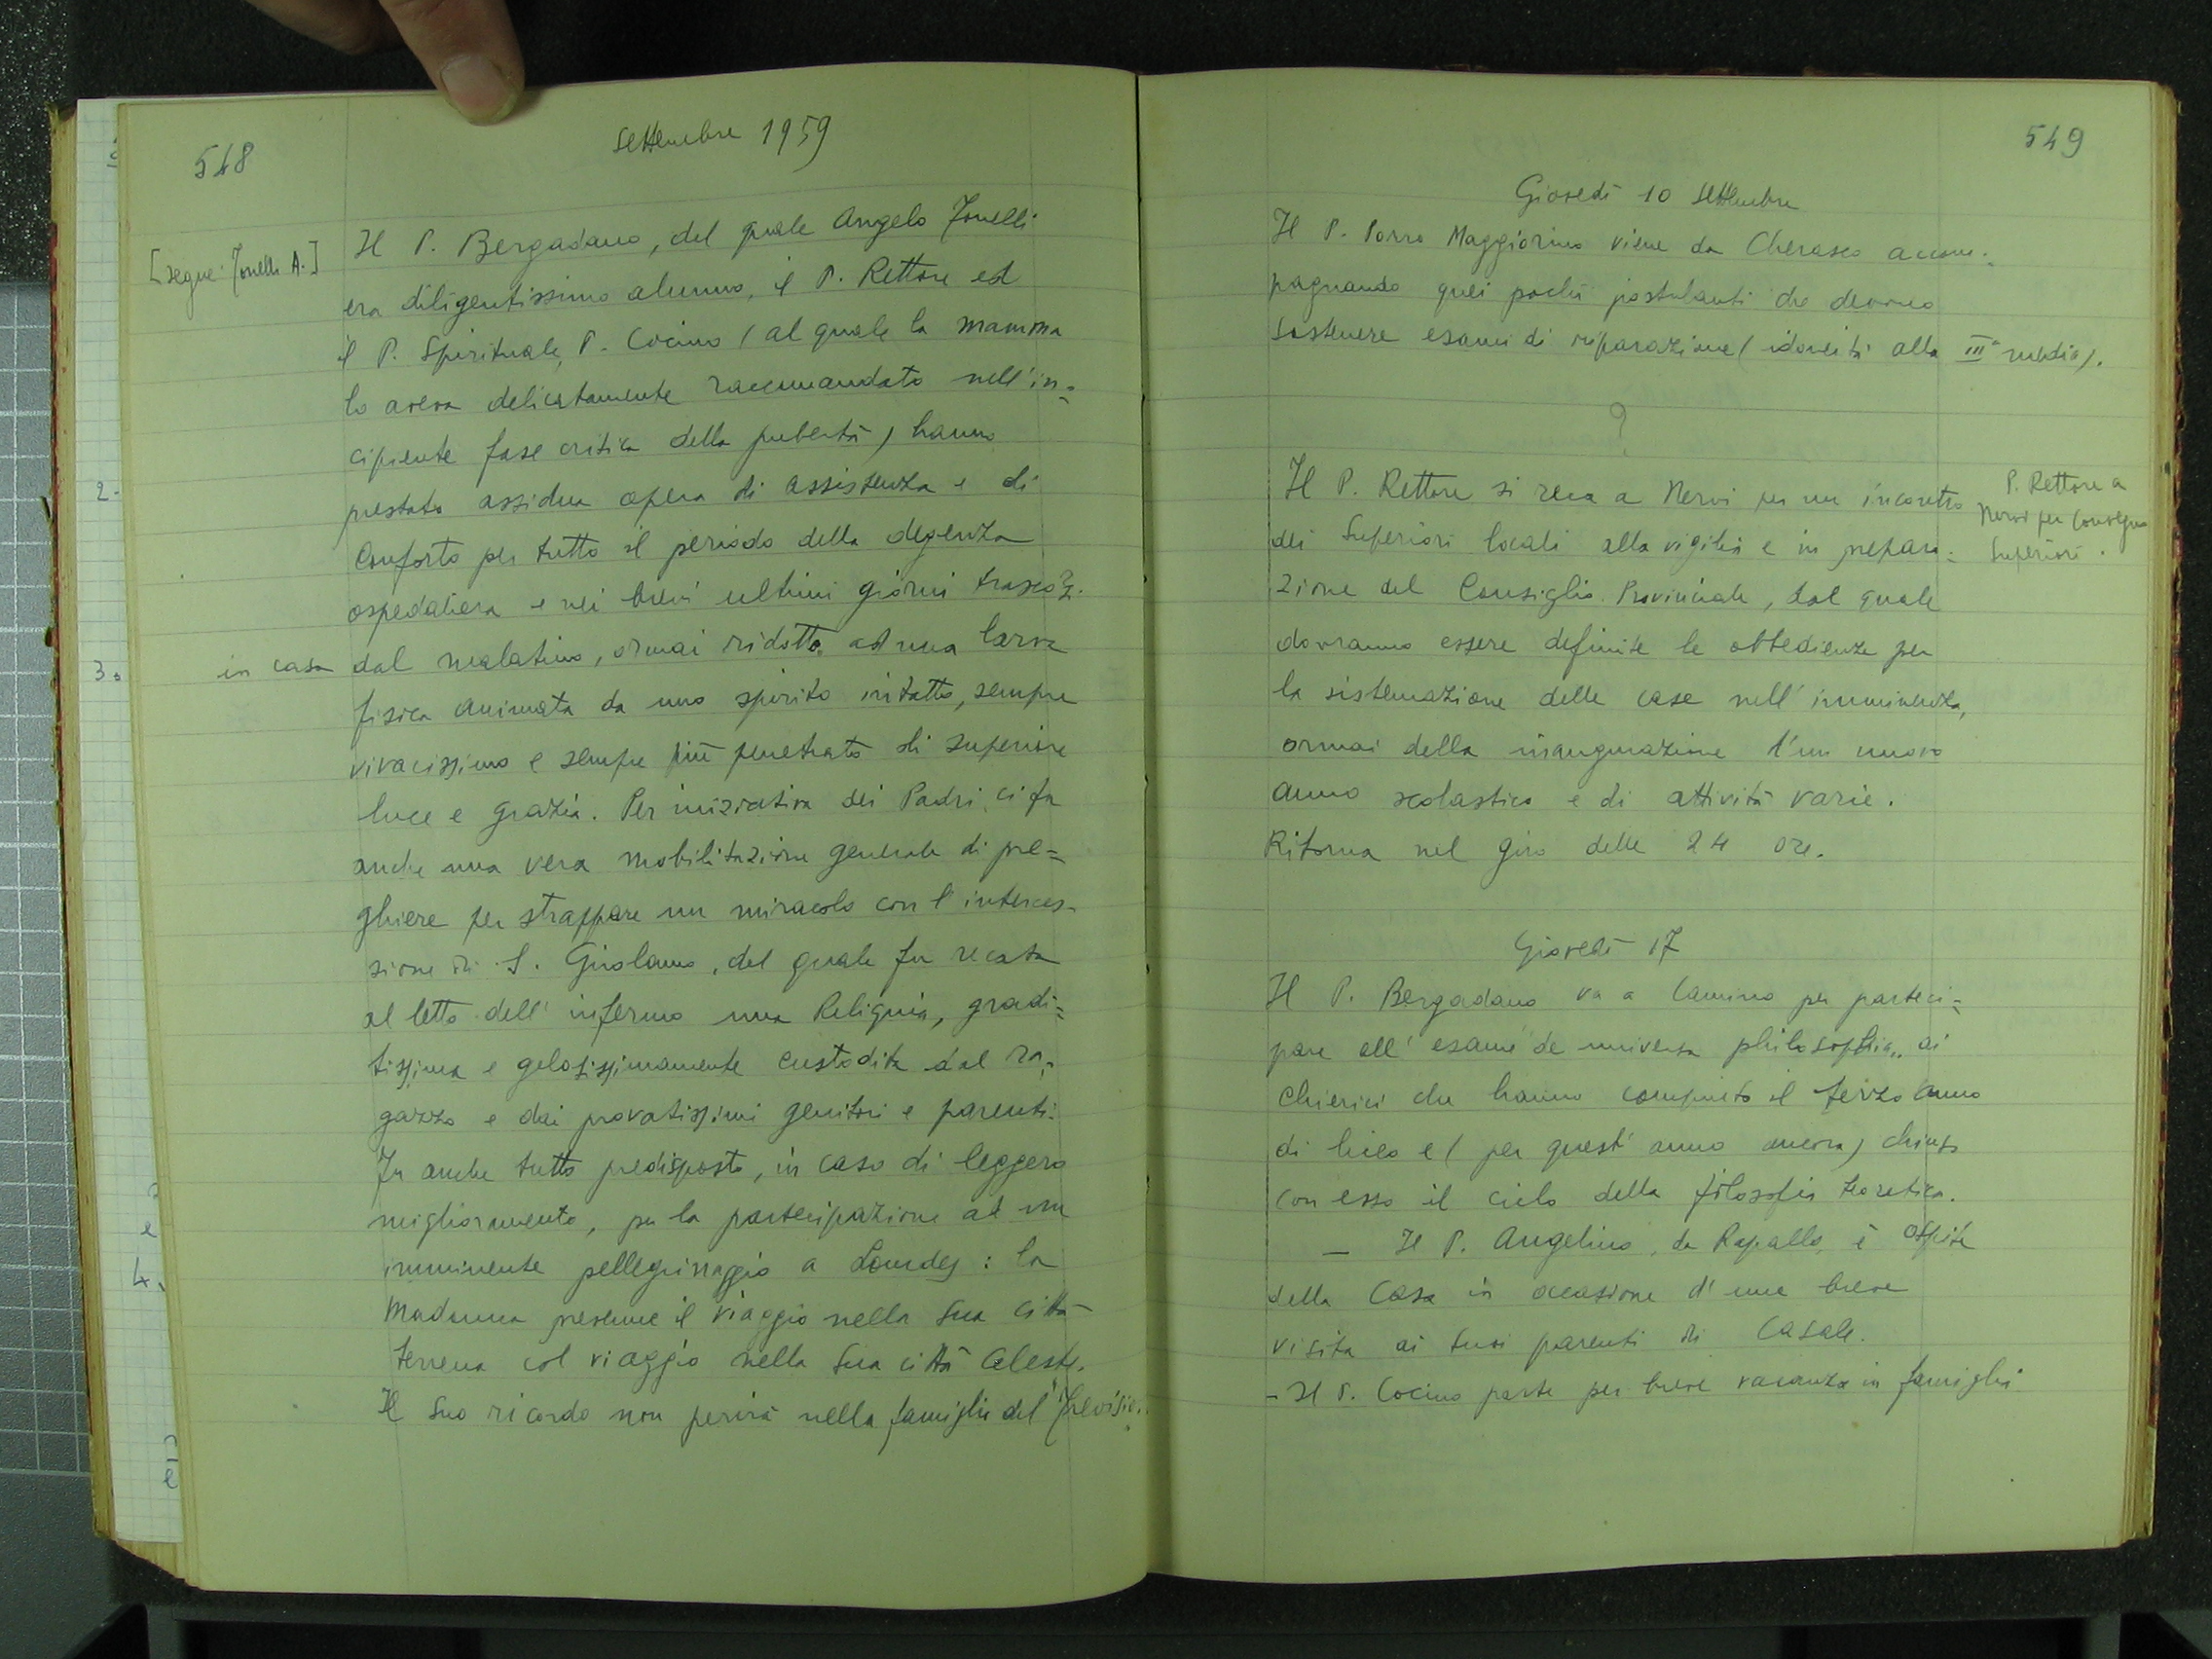 548
Settembre 1959
[segue: Jonelli A.]
Il P. Bergadano, del quale Angelo Jonelli
era diligentissimo alunno, il P. Rettore ed
il P. Spirituale, P. Cocino (al quale la mamma
lo aveva delicatamente raccomandato nell'in=
cipiente fase critica della pubertà) hanno
prestato assidua opera di assistenza e di
conforto per tutto il periodo della degenza
ospedaliera e nei brevi ultimi giorni trascorsi
in casa dal malatino, ormai ridotto ad una larva
fisica animata da uno spirito intatto, sempre
vivacissimo e sempre più penetrato di superiore
luce e grazia. Per iniziativa dei Padri, ci fu
anche una vera mobilitazione generale di pre=
ghiere per strappare un miracolo con l'interces-
sione di S. Girolamo, del quale fu recata
al letto dell'infermo una Reliquia, gradi=
tissima e gelosissimamente custodita dal ra=
gazzo e dai provatissimi genitori e parenti.
Fu anche tutto predisposto, in caso di leggero
miglioramento, per la partecipazione ad un
imminente pellegrinaggio a Lourdes: la
Madonna prevenne il viaggio nella Sua città
terrena col viaggio nella Sua città celeste.
Il suo ricordo non perirà nella famiglia del
2.
3.
4.
549
Giovedì 10 Settembre
Il P. Porro Maggiorino viene da Cherasco accom=
pagnando quei pochi postulanti che devono
sostenere esami di riparazione (idoneità alla IIIª media).
?
Il P. Rettore si reca a Nervi per un incontro
dei Superiori locali alla vigilia e in prepara=
zione del Consiglio Provinciale, dal quale
dovranno essere definite le obbedienze per
la sistemazione delle case nell'imminenza,
ormai della inaugurazione d'un nuovo
anno scolastico e di attività varie.
Ritorna nel giro delle 24 ore.
P. Rettore a
Nervi per convegno
Superiori.
Giovedì 17
Il P. Bergadano va a Camino per parteci=
pare all'esame "de universa philosophia" ai
chierici che hanno compiuto il terzo anno
di liceo e (per quest'anno ancora) chiuso
con esso il ciclo della filosofia teoretica.
— Il P. Angelino, da Rapallo, è ospite
della Casa in occasione d'una breve
visita ai suoi parenti di Casale.
- Il P. Cocino parte per breve vacanza in famiglia